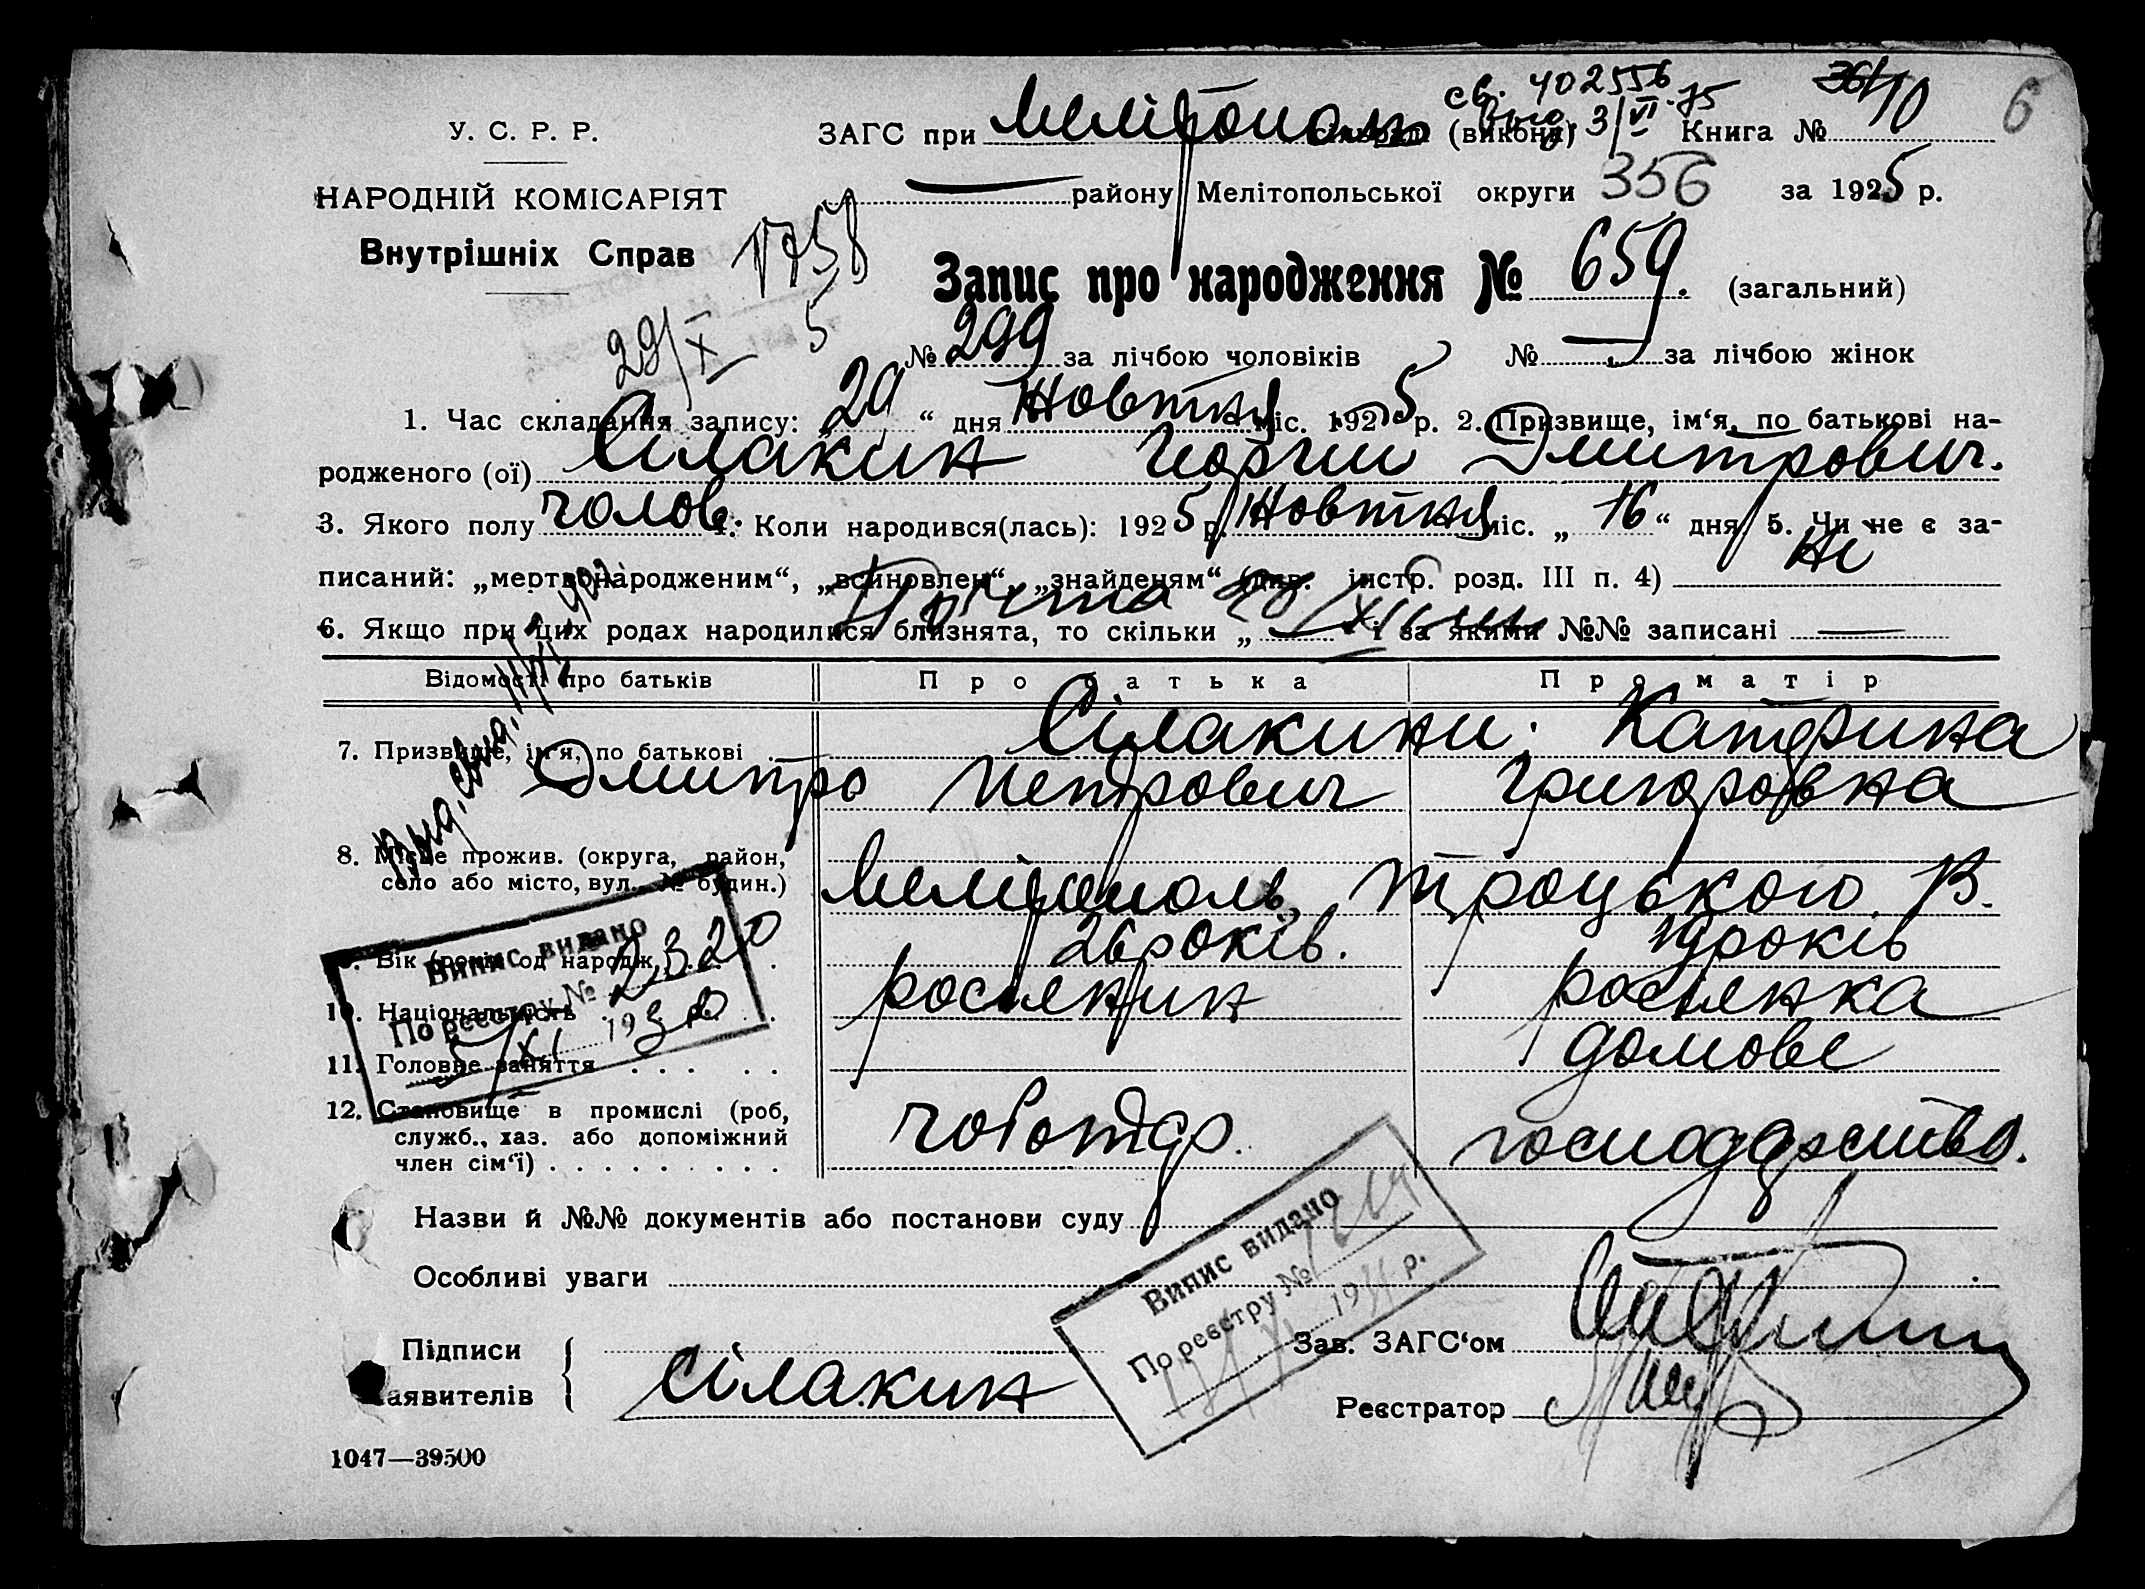 св. 402556
361 10 6
У. С. Р. Р.
ЗАГС при Мелітополь сільраді (викона) 3/VI 75 Книга №
НАРОДНІЙ КОМІСАРІЯТ
— району Мелітопольської округи 356 за 1925 р.
Внутрішніх Справ
1758
Запис про народження № 659. (загальний)
29/X 5
№ 299 за лічбою чоловіків № — за лічбою жінок
1. Час складання запису: „29“ дня Жовтня міс. 1925 р. 2. Призвище, ім‘я, по батькові на-
родженого (ої) Сілакин Георгий Дмитрович.
3. Якого полу чолов. 4. Коли народився(лась): 1925 р. Жовтня міс. „16“ дня 5. Чи не є за-
писаний: „мертвонародженим“, „всиновлен“, „знайденям“ (див. інстр. розд. III п. 4) Ні
6. Якщо при цих родах народилися близнята, то скільки „ — “ і за якими №№ записані —
Відомості про батьків Про батька Про матір
7. Призвище, ім‘я, по батькові Сілакини: Катерина
Дмитро Петрович Григоровна
8. Місце прожив. (округа, район,
село або місто, вул., № будин.) Мелітополь, Троцького 13.
9. Вік (років од народж.) 26 років. 19 років
10. Національність росіянин росіянка
11. Головне заняття домове
12. Становище в промислі (роб,
служб., хаз. або допоміжний
член сім‘ї) чоботар. господарство.
Випис видано
По реєстру № 2320
5/XI 1930 р.
Назви й №№ документів або постанови суду
Особливі уваги
Випис видано
По реєстру №
193 р.
Підписи
Заявителів Сілакин
Зав. ЗАГС‘ом
Реєстратор
1047—39500